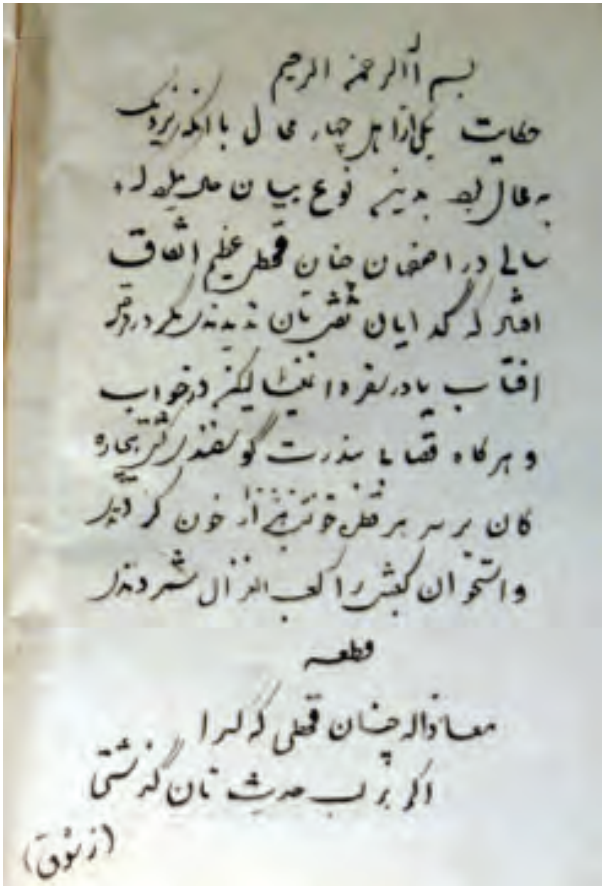 بسم الله الرحمن الرحیم
حکایت یکی از اهل چهار محال با آنکه نزدیک
به محال بود بدینم نوع بیان
سالی در اصفهان چنان قحطی عظیم اتفاق
افتاد که گدایان نقش نان ندیدند مگر در قرص
آفتاب پا در سفره لیکن در خواب
و هر گاه قصاب بندرت گوسفندی کشتی بیچاره
گان بر سر هر قطره خون گردیدند
و استخوان کبش را کعب الغزال شمردند
قطعه
معاذاله چنان قحطی که کس را
اگر بر لب حدیث نان گذشتی
(ز ذوق)